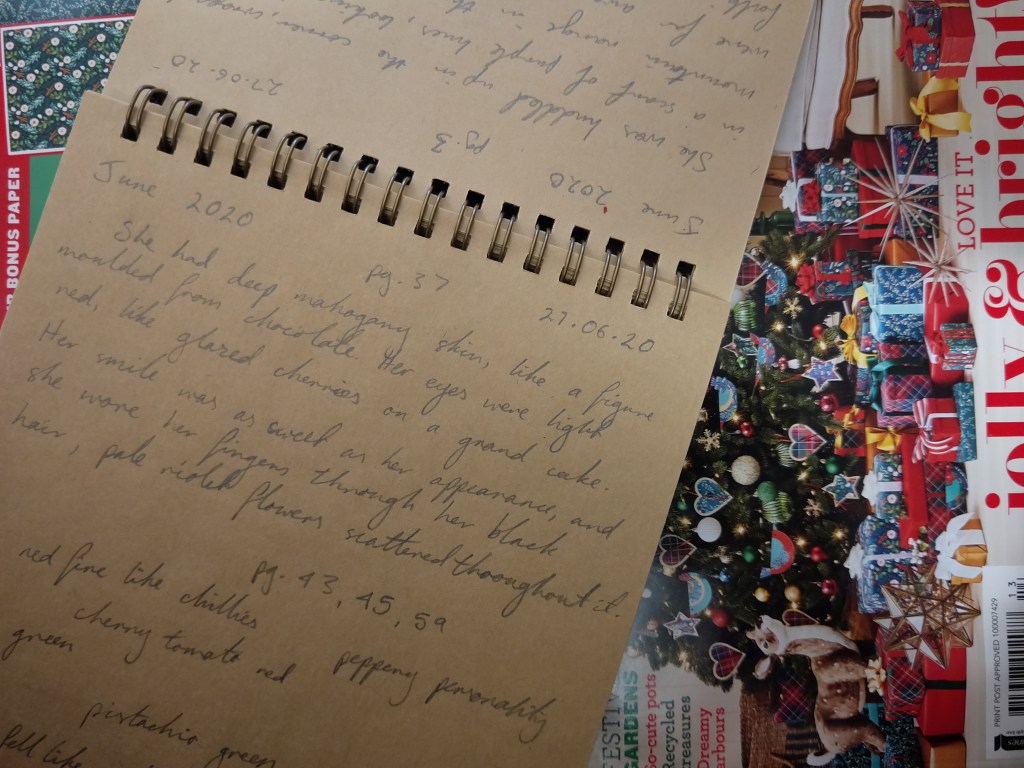 June 2020
pg. 3
27.06.20
She was huddled up in the corner,
in a scarf of purple hues,
mountain range in
were far
June 2020 pg. 37 27.06.20
She had deep mahogany skin, like a figure
moulded from chocolate. Her eyes were light
red, like glazed cherries on a grand cake.
Her smile was as sweet as her appearance, and
she wore her fingers through her black
hair, pale violet flowers scattered throughout it.
pg. 43, 45, 59
red fire like chillies
cherry tomato red peppery personality
green
pistachio green
fell like
R BONUS PAPER
LOVE IT
jolly & bright
FESTIV
GARDENS
So-cute pots
Recycled
treasures
Dreamy
arbours
PRINT POST APPROVED 100007429
13